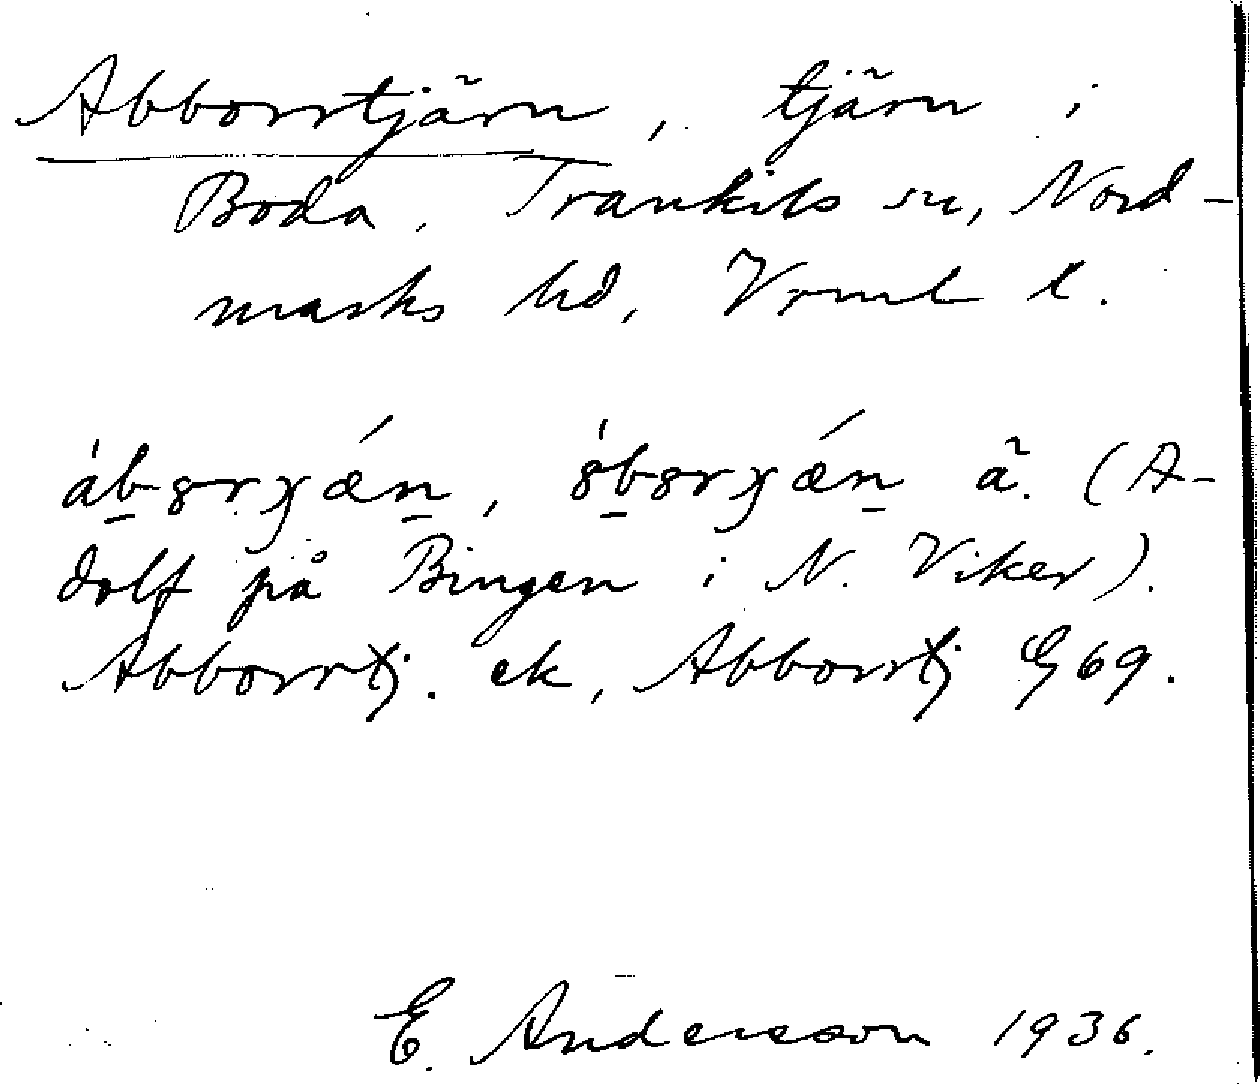 Abborrtjärn, tjärn i
Boda, Trankils sn, Nord-
marks hd, Vrml l.
ábo̤rχæ´n, óborχæ´n ä. (A-
dolf på Bingen i N. Viker).
Abborrtj. ek, Abborrtj G 69.
E. Andersson 1936.